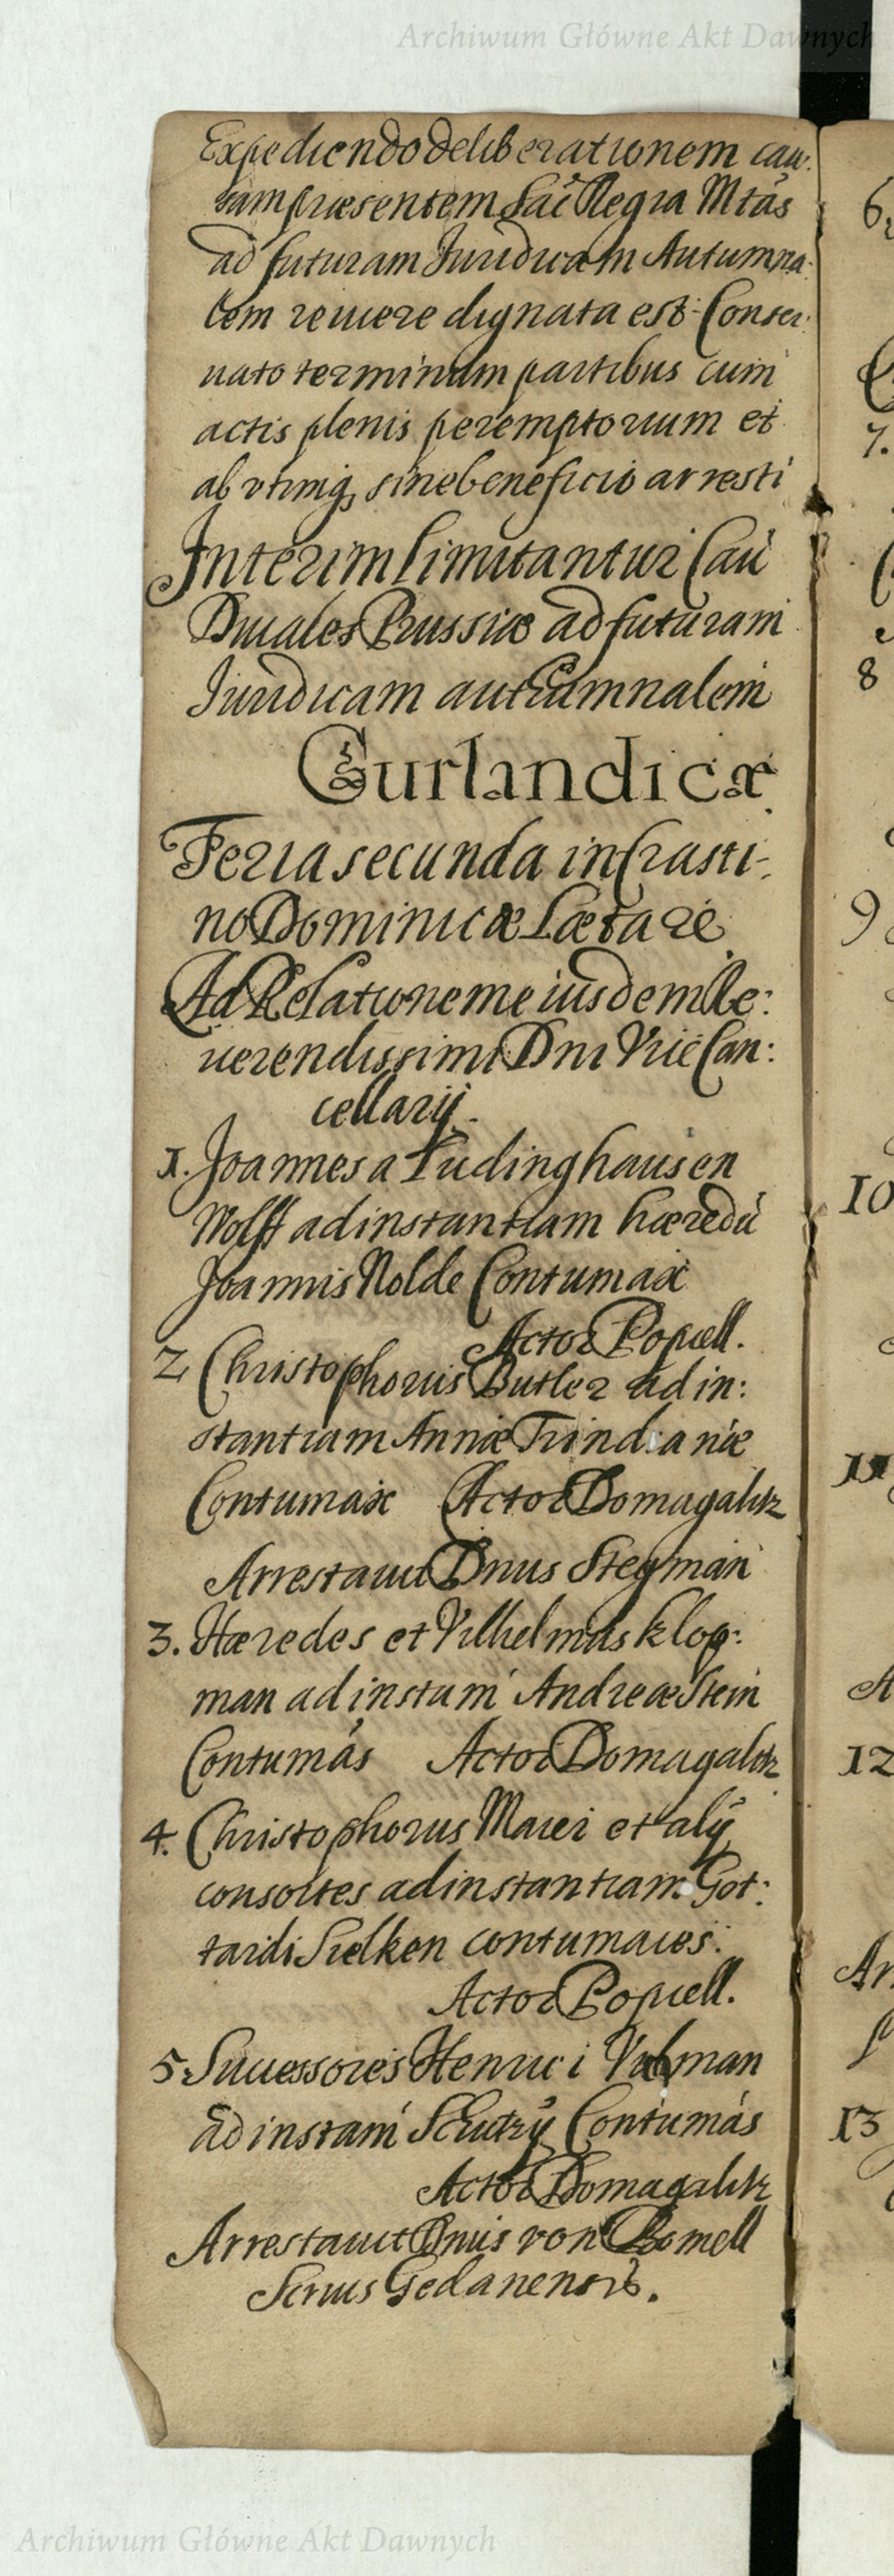 Archiwum Główne Akt Dawnych
Expediendo deliberationem cau:
sam præsentem Sac̃ Regia Mtãs
ad futuram Juridicam Autumna:
lem reiicere dignata est. Conser:
uato terminum partibus cum
actis plenis peremptorium et
ab utrinq, sine beneficio arresti
Interim limitantur Cau
Ducales Prussiæ ad futuram
Juridicam autumnalem
Curlandicæ
Feria secunda in Crasti-
no Dominicæ Lætare
Ad Relationem eiusdem Re:
uerendissimi Dni Vice Can:
cellarij.
1. Joannes a Ludinghausen
Wolff ad instantiam hæredũ
Joannis Nolde Contumax
Actor Popiell.
2 Christophorus Butler ad in:
stantiam Annæ
Contumax Actor Domagalik
Arrestauit Dnus Stegman
3. Hæredes et Vilhelmus Klop:
man ad instam̃ Andreæ Stein
Contumãs Actor Domagalik
4. Christophorus Maier et alij
consortes ad instantiam Got:
tardi Sielken contumaces.
Actor Popiell.
5 Successores Henrici
ad instam̃ Contumãs
Actor Domagalik
Arrestauit Dnus von
Scrius Gedanensis.
6
7.
8
9
10
11
12
13
Archiwum Główne Akt Dawnych